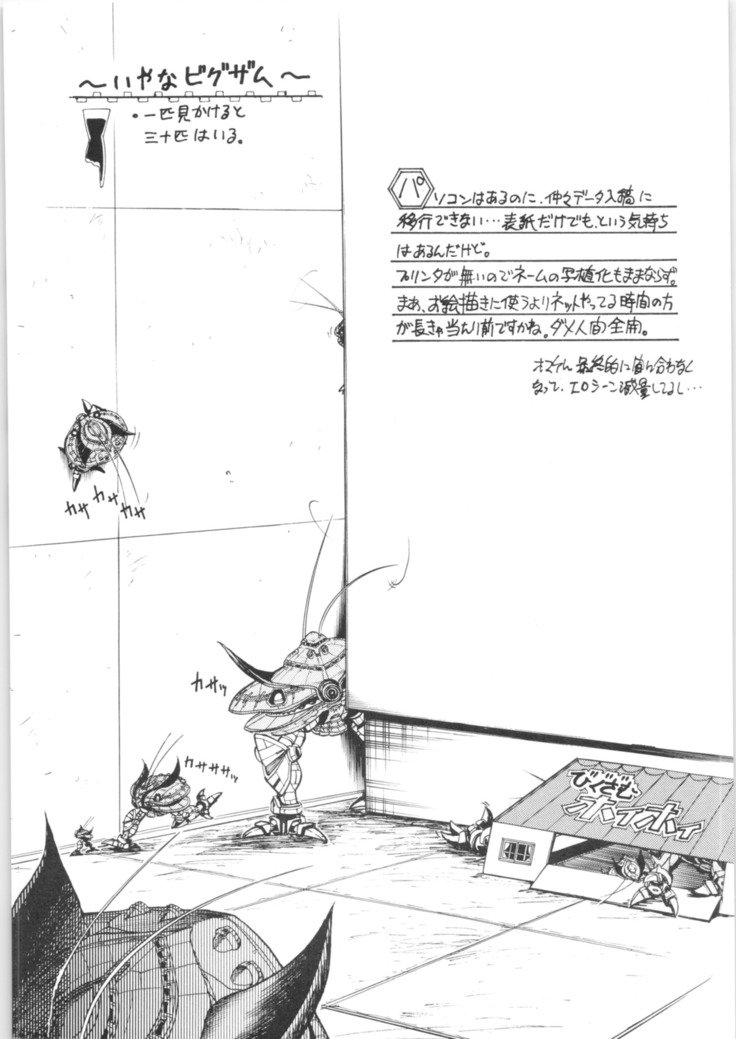 ～いやなビグザム～
・一匹見かけると
三十匹はいる。
パソコンはあるのに、仲々データ入稿に
移行できない…表紙だけでも、という気持ち
はあるんだけど。
プリンタが無いのでネームの写植化もままならず。
まあ、お絵描きに使うよりネットやってる時間の方
が長きゃ当たり前ですかね。ダメ人間全開。
最終的に
なって、エロシーン減量してるし…
カサ
カサ
カサ
カサッ
カササササッ
びぐざむ
ホイホイ